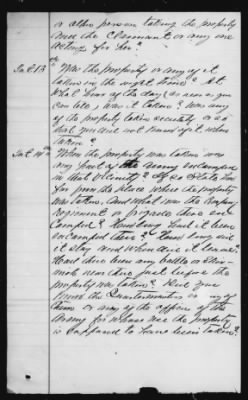 or other person taking the property
and the claimant or any one
acting for her?
Int 13th Was the property or any of it
taken in the night time? At
what hour of the day (as near as you
can tell) was it taken? Was any
of the property taken secretly or so
that you did not know of it when
taken?
Int 14th When the property was taken was
any part of the army encamped
in that vicinity? If so state how
far from the place where the property
was taken, and what was the company
regiment or brigade there en-
camped? How long had it been
encamped there? How long did
it stay and when did it leave?
Had there been any battle or skir-
mish near there just before the
property was taken? Did you
know the Quartermasters or any of
them or any of the officers of the
Army for whose use the property
is supposed to have been taken?